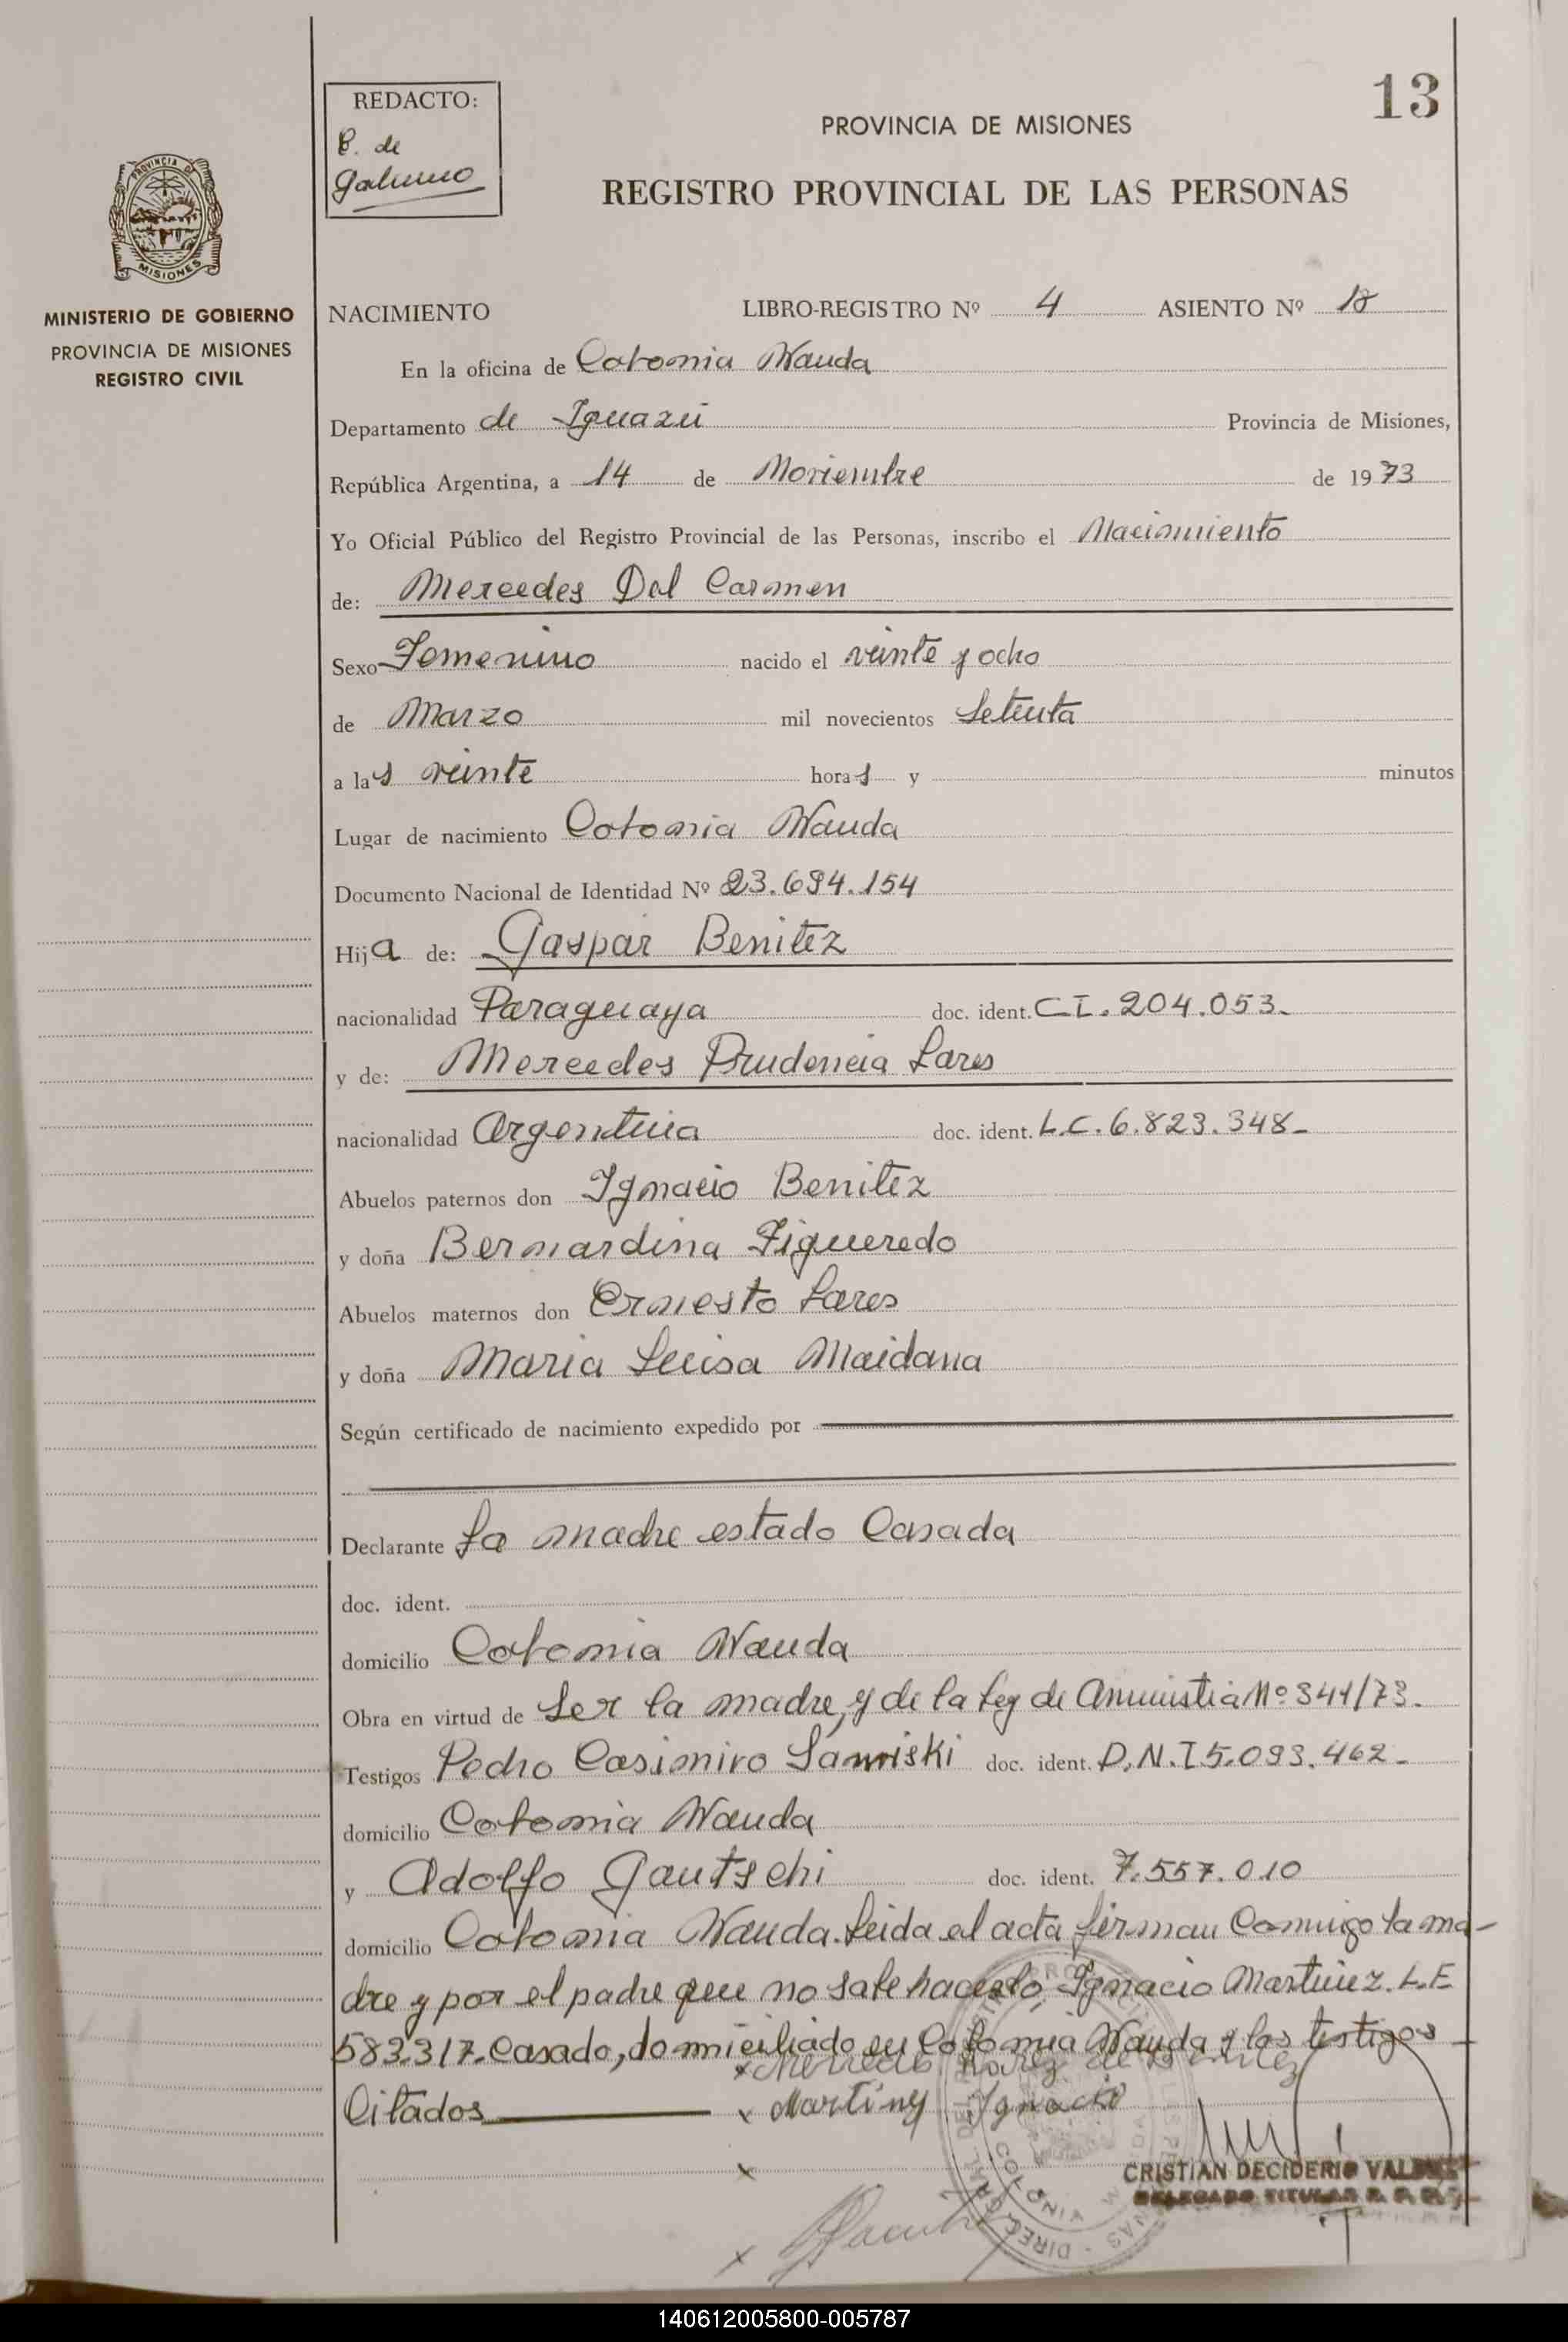 13
REDACTO:
de
PROVINCIA DE MISIONES
REGISTRO PROVINCIAL DE LAS PERSONAS
PROVINCIA DE
MISIONES
MINISTERIO DE GOBIERNO
PROVINCIA DE MISIONES
REGISTRO CIVIL
NACIMIENTO LIBRO-REGISTRO Nº 4 ASIENTO Nº
En la oficina de Colonia Wanda
Departamento de Iguazú Provincia de Misiones,
República Argentina, a 14 de Noviembre de 1973
Yo Oficial Público del Registro Provincial de las Personas, inscribo el Nacimiento
de: Mercedes Del Carmen
Sexo Femenino nacido el veinte y ocho
de Marzo mil novecientos Setenta
a las veinte horas y minutos
Lugar de nacimiento Colonia Wanda
Documento Nacional de Identidad Nº 23.694.154
Hija de: Gaspar Benitez
nacionalidad Paraguaya doc. ident. C.I. 204.053.
y de: Mercedes Prudencia Lares
nacionalidad Argentina doc. ident. L.C. 6.823.348-
Abuelos paternos don Ignacio Benitez
y doña Bernardina Figueredo
Abuelos maternos don Ernesto Lares
y doña Maria Luisa Maidana
Según certificado de nacimiento expedido por
Declarante La madre estado Casada
doc. ident.
domicilio Colonia Wanda
Obra en virtud de Ser la madre, y de la Ley de Amnistia Nº 344/73.
Testigos Pedro Casimiro doc. ident. D.N.I 5.093.462-
domicilio Colonia Wanda
y Adolfo Gautschi doc. ident. 7.557.010
domicilio Colonia Wanda. Leida el acta firman Conmigo la ma-
dre y por el padre que no sabe hacerlo Ignacio Martinez. L.E
583.317. Casado, domiciliado en Colonia Wanda y los testigos
x Mercedes de Benitez
Citados x Martinez Ignacio
x
CRISTIAN DECIDERIO
DELEGADO TITULAR R. P. P.
x
COLONIA
140612005800-005787